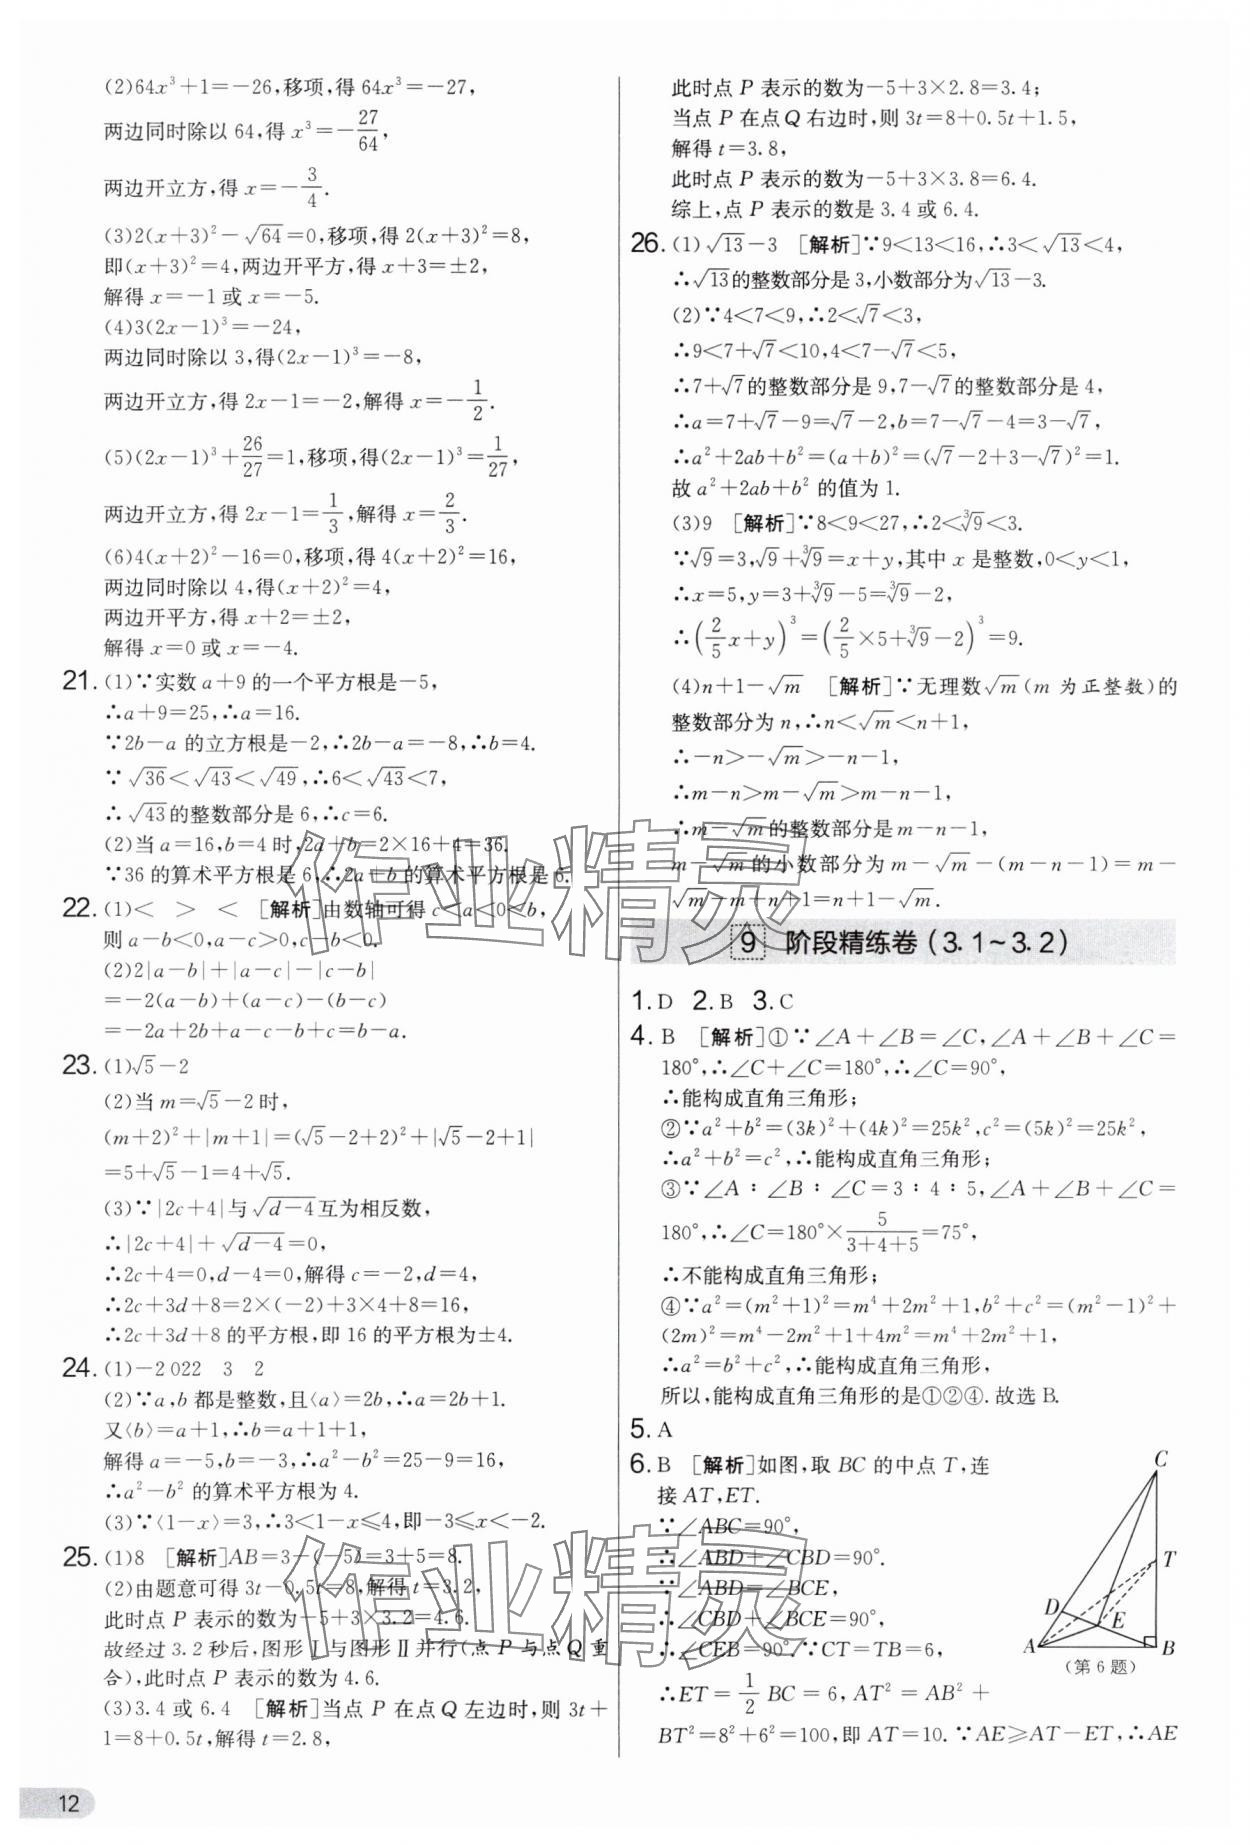 (2)64x³+1=-26,移项,得 64x³=-27,
两边同时除以 64,得 x³=-27/64,
两边开立方,得 x=-3/4.
(3)2(x+3)²-√64=0,移项,得 2(x+3)²=8,
即(x+3)²=4,两边开平方,得 x+3=±2,
解得 x=-1 或 x=-5.
(4)3(2x-1)³=-24,
两边同时除以 3,得(2x-1)³=-8,
两边开立方,得 2x-1=-2,解得 x=-1/2.
(5)(2x-1)³+26/27=1,移项,得(2x-1)³=1/27,
两边开立方,得 2x-1=1/3,解得 x=2/3.
(6)4(x+2)²-16=0,移项,得 4(x+2)²=16,
两边同时除以 4,得(x+2)²=4,
两边开平方,得 x+2=±2,
解得 x=0 或 x=-4.
21. (1)∵实数 a+9 的一个平方根是-5,
∴a+9=25,∴a=16.
∵2b-a 的立方根是-2,∴2b-a=-8,∴b=4.
∵√36<√43<√49,∴6<√43<7,
∴√43的整数部分是 6,∴c=6.
(2)当 a=16,b=4 时,2a+b=2×16+4=36.
∵36 的算术平方根是 6,∴2a+b 的算术平方根是 6.
22. (1)< > < [解析]由数轴可得 c<a<0<b,
则 a-b<0,a-c>0,c-b<0.
(2)2|a-b|+|a-c|-|c-b|
=-2(a-b)+(a-c)-(b-c)
=-2a+2b+a-c-b+c=b-a.
23. (1)√5-2
(2)当 m=√5-2 时,
(m+2)²+|m+1|=(√5-2+2)²+|√5-2+1|
=5+√5-1=4+√5.
(3)∵|2c+4|与√(d-4)互为相反数,
∴|2c+4|+√(d-4)=0,
∴2c+4=0,d-4=0,解得 c=-2,d=4,
∴2c+3d+8=2×(-2)+3×4+8=16,
∴2c+3d+8 的平方根,即 16 的平方根为±4.
24. (1)-2 022 3 2
(2)∵a,b 都是整数,且⟨a⟩=2b,∴a=2b+1.
又⟨b⟩=a+1,∴b=a+1+1,
解得 a=-5,b=-3,∴a²-b²=25-9=16,
∴a²-b² 的算术平方根为 4.
(3)∵⟨1-x⟩=3,∴3<1-x≤4,即-3≤x<-2.
25. (1)8 [解析]AB=3-(-5)=3+5=8.
(2)由题意可得 3t-0.5t=8,解得 t=3.2,
此时点 P 表示的数为-5+3×3.2=4.6.
故经过 3.2 秒后,图形Ⅰ与图形Ⅱ并行(点 P 与点 Q 重
合),此时点 P 表示的数为 4.6.
(3)3.4 或 6.4 [解析]当点 P 在点 Q 左边时,则 3t+
1=8+0.5t,解得 t=2.8,
12
此时点 P 表示的数为-5+3×2.8=3.4;
当点 P 在点 Q 右边时,则 3t=8+0.5t+1.5,
解得 t=3.8,
此时点 P 表示的数为-5+3×3.8=6.4.
综上,点 P 表示的数是 3.4 或 6.4.
26. (1)√13-3 [解析]∵9<13<16,∴3<√13<4,
∴√13的整数部分是 3,小数部分为√13-3.
(2)∵4<7<9,∴2<√7<3,
∴9<7+√7<10,4<7-√7<5,
∴7+√7的整数部分是 9,7-√7的整数部分是 4,
∴a=7+√7-9=√7-2,b=7-√7-4=3-√7,
∴a²+2ab+b²=(a+b)²=(√7-2+3-√7)²=1.
故 a²+2ab+b² 的值为 1.
(3)9 [解析]∵8<9<27,∴2<³√9<3.
∵√9=3,√9+³√9=x+y,其中 x 是整数,0<y<1,
∴x=5,y=3+³√9-5=³√9-2,
∴(2/5x+y)³=(2/5×5+³√9-2)³=9.
(4)n+1-√m [解析]∵无理数√m(m 为正整数)的
整数部分为 n,∴n<√m<n+1,
∴-n>-√m>-n-1,
∴m-n>m-√m>m-n-1,
∴m-√m的整数部分是 m-n-1,
m-√m的小数部分为 m-√m-(m-n-1)=m-
√m-m+n+1=n+1-√m.
9 阶段精练卷(3.1~3.2)
1. D 2. B 3. C
4. B [解析]①∵∠A+∠B=∠C,∠A+∠B+∠C=
180°,∴∠C+∠C=180°,∴∠C=90°,
∴能构成直角三角形;
②∵a²+b²=(3k)²+(4k)²=25k²,c²=(5k)²=25k²,
∴a²+b²=c²,∴能构成直角三角形;
③∵∠A∶∠B∶∠C=3∶4∶5,∠A+∠B+∠C=
180°,∴∠C=180°×5/(3+4+5)=75°,
∴不能构成直角三角形;
④∵a²=(m²+1)²=m⁴+2m²+1,b²+c²=(m²-1)²+
(2m)²=m⁴-2m²+1+4m²=m⁴+2m²+1,
∴a²=b²+c²,∴能构成直角三角形,
所以,能构成直角三角形的是①②④.故选 B.
5. A
6. B [解析]如图,取 BC 的中点 T,连
接 AT,ET.
∵∠ABC=90°,
∴∠ABD+∠CBD=90°.
∵∠ABD=∠BCE,
∴∠CBD+∠BCE=90°,
∴∠CEB=90°.∵CT=TB=6,
∴ET=1/2 BC=6,AT²=AB²+
BT²=8²+6²=100,即 AT=10.∵AE≥AT-ET,∴AE
C
T
D
E
A
B
(第 6 题)
作业精灵
作业精灵